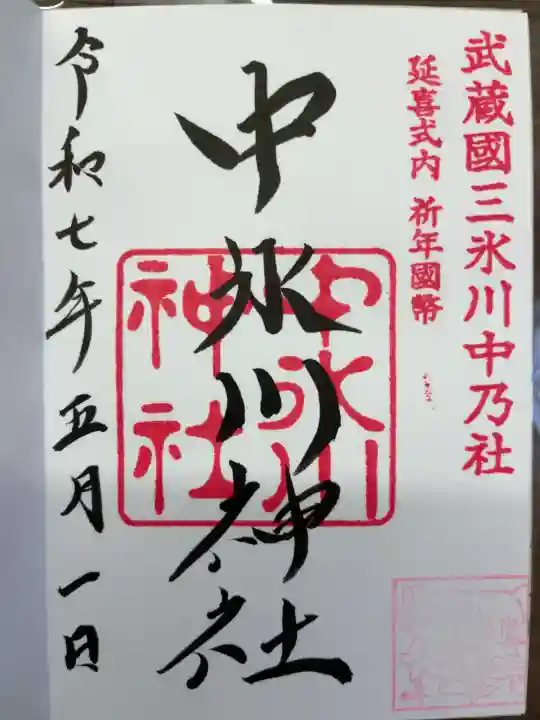 武蔵國三氷川中乃社
延喜式内 祈年國幣
中氷川神社
中氷川
神社
令和七年五月一日